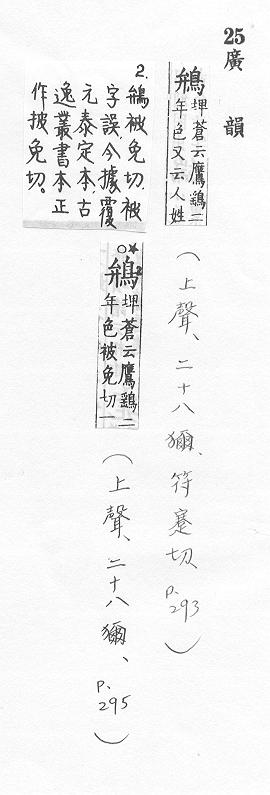 25廣韻
鴘埤蒼云鷹鷂二
年色又云人姓
（上聲、二十八獮、符蹇切 p.293）
2.鴘被免切,被
字誤,今據覆
元泰定本、古
逸叢書本正
作披免切。
○★
鴘2埤蒼云鷹鷂二
年色被免切一
（上聲、二十八獮、p.295）